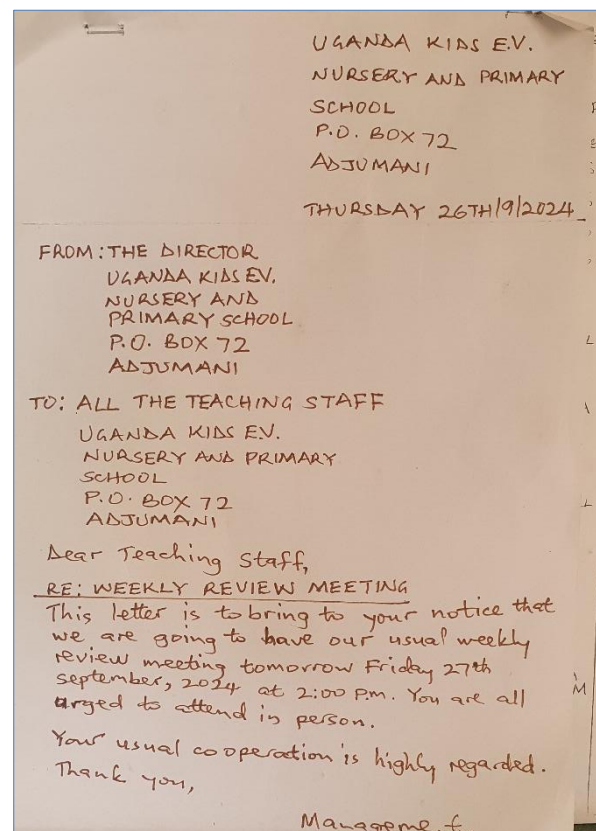 UGANDA KIDS E.V.
NURSERY AND PRIMARY
SCHOOL
P.O. BOX 72
ADJUMANI
THURSDAY 26TH/9/2024
FROM: THE DIRECTOR
UGANDA KIDS EV.
NURSERY AND
PRIMARY SCHOOL
P.O. BOX 72
ADJUMANI
TO: ALL THE TEACHING STAFF
UGANDA KIDS E.V.
NURSERY AND PRIMARY
SCHOOL
P.O. BOX 72
ADJUMANI
Dear Teaching Staff,
RE: WEEKLY REVIEW MEETING
This letter is to bring to your notice that
we are going to have our usual weekly
review meeting tomorrow Friday 27th
september, 2024 at 2:00 p.m. You are all
urged to attend in person.
Your usual cooperation is highly regarded.
Thank you,